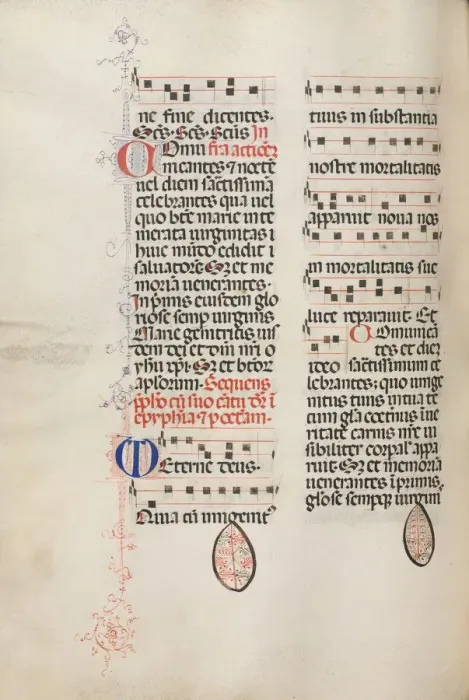 ne fine dicentes.
Scs. Scs. Scus In
Omu fra actioez
micantes ⁊ nocte
uel diem sactissima
celebrantes qua uel
quo bte marie inte
merata uirginitas
huic mudo edidit i
saluatore Sz et me
moria uenerantes.
In pmis eiusdem glo
riose semp uirginis
Marie genitricis
dem dei et dni nri
yhu xpi. Sz et btor
aplorum. Sequens
pfho cu suo catu dr i
epyphia ⁊ p octam.
Eterne deus.
Quia cu unigenit
tuus in substantia
nostre mortalitatis
apparuit noua nos
in mortalitatis sue
luce reparauit. Et
Comunica
tes et diez
ideo sactissimum ce
lebrantes: quo unige
nitus tuus in tua te
cum gla coetnus in ue
ritate carnis nre ui
sibiliter corpal appa
ruit. Sz et memoria
uenerantes i primis.
glose sempqz uirgini